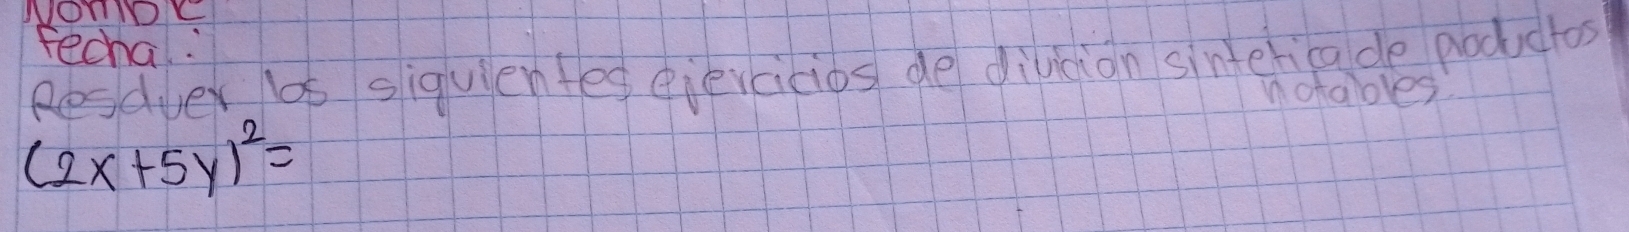 Nombre
fecha :
Resolver los siguientes ejercicios de división sintetica de productos
notables
(2x+5y)²=